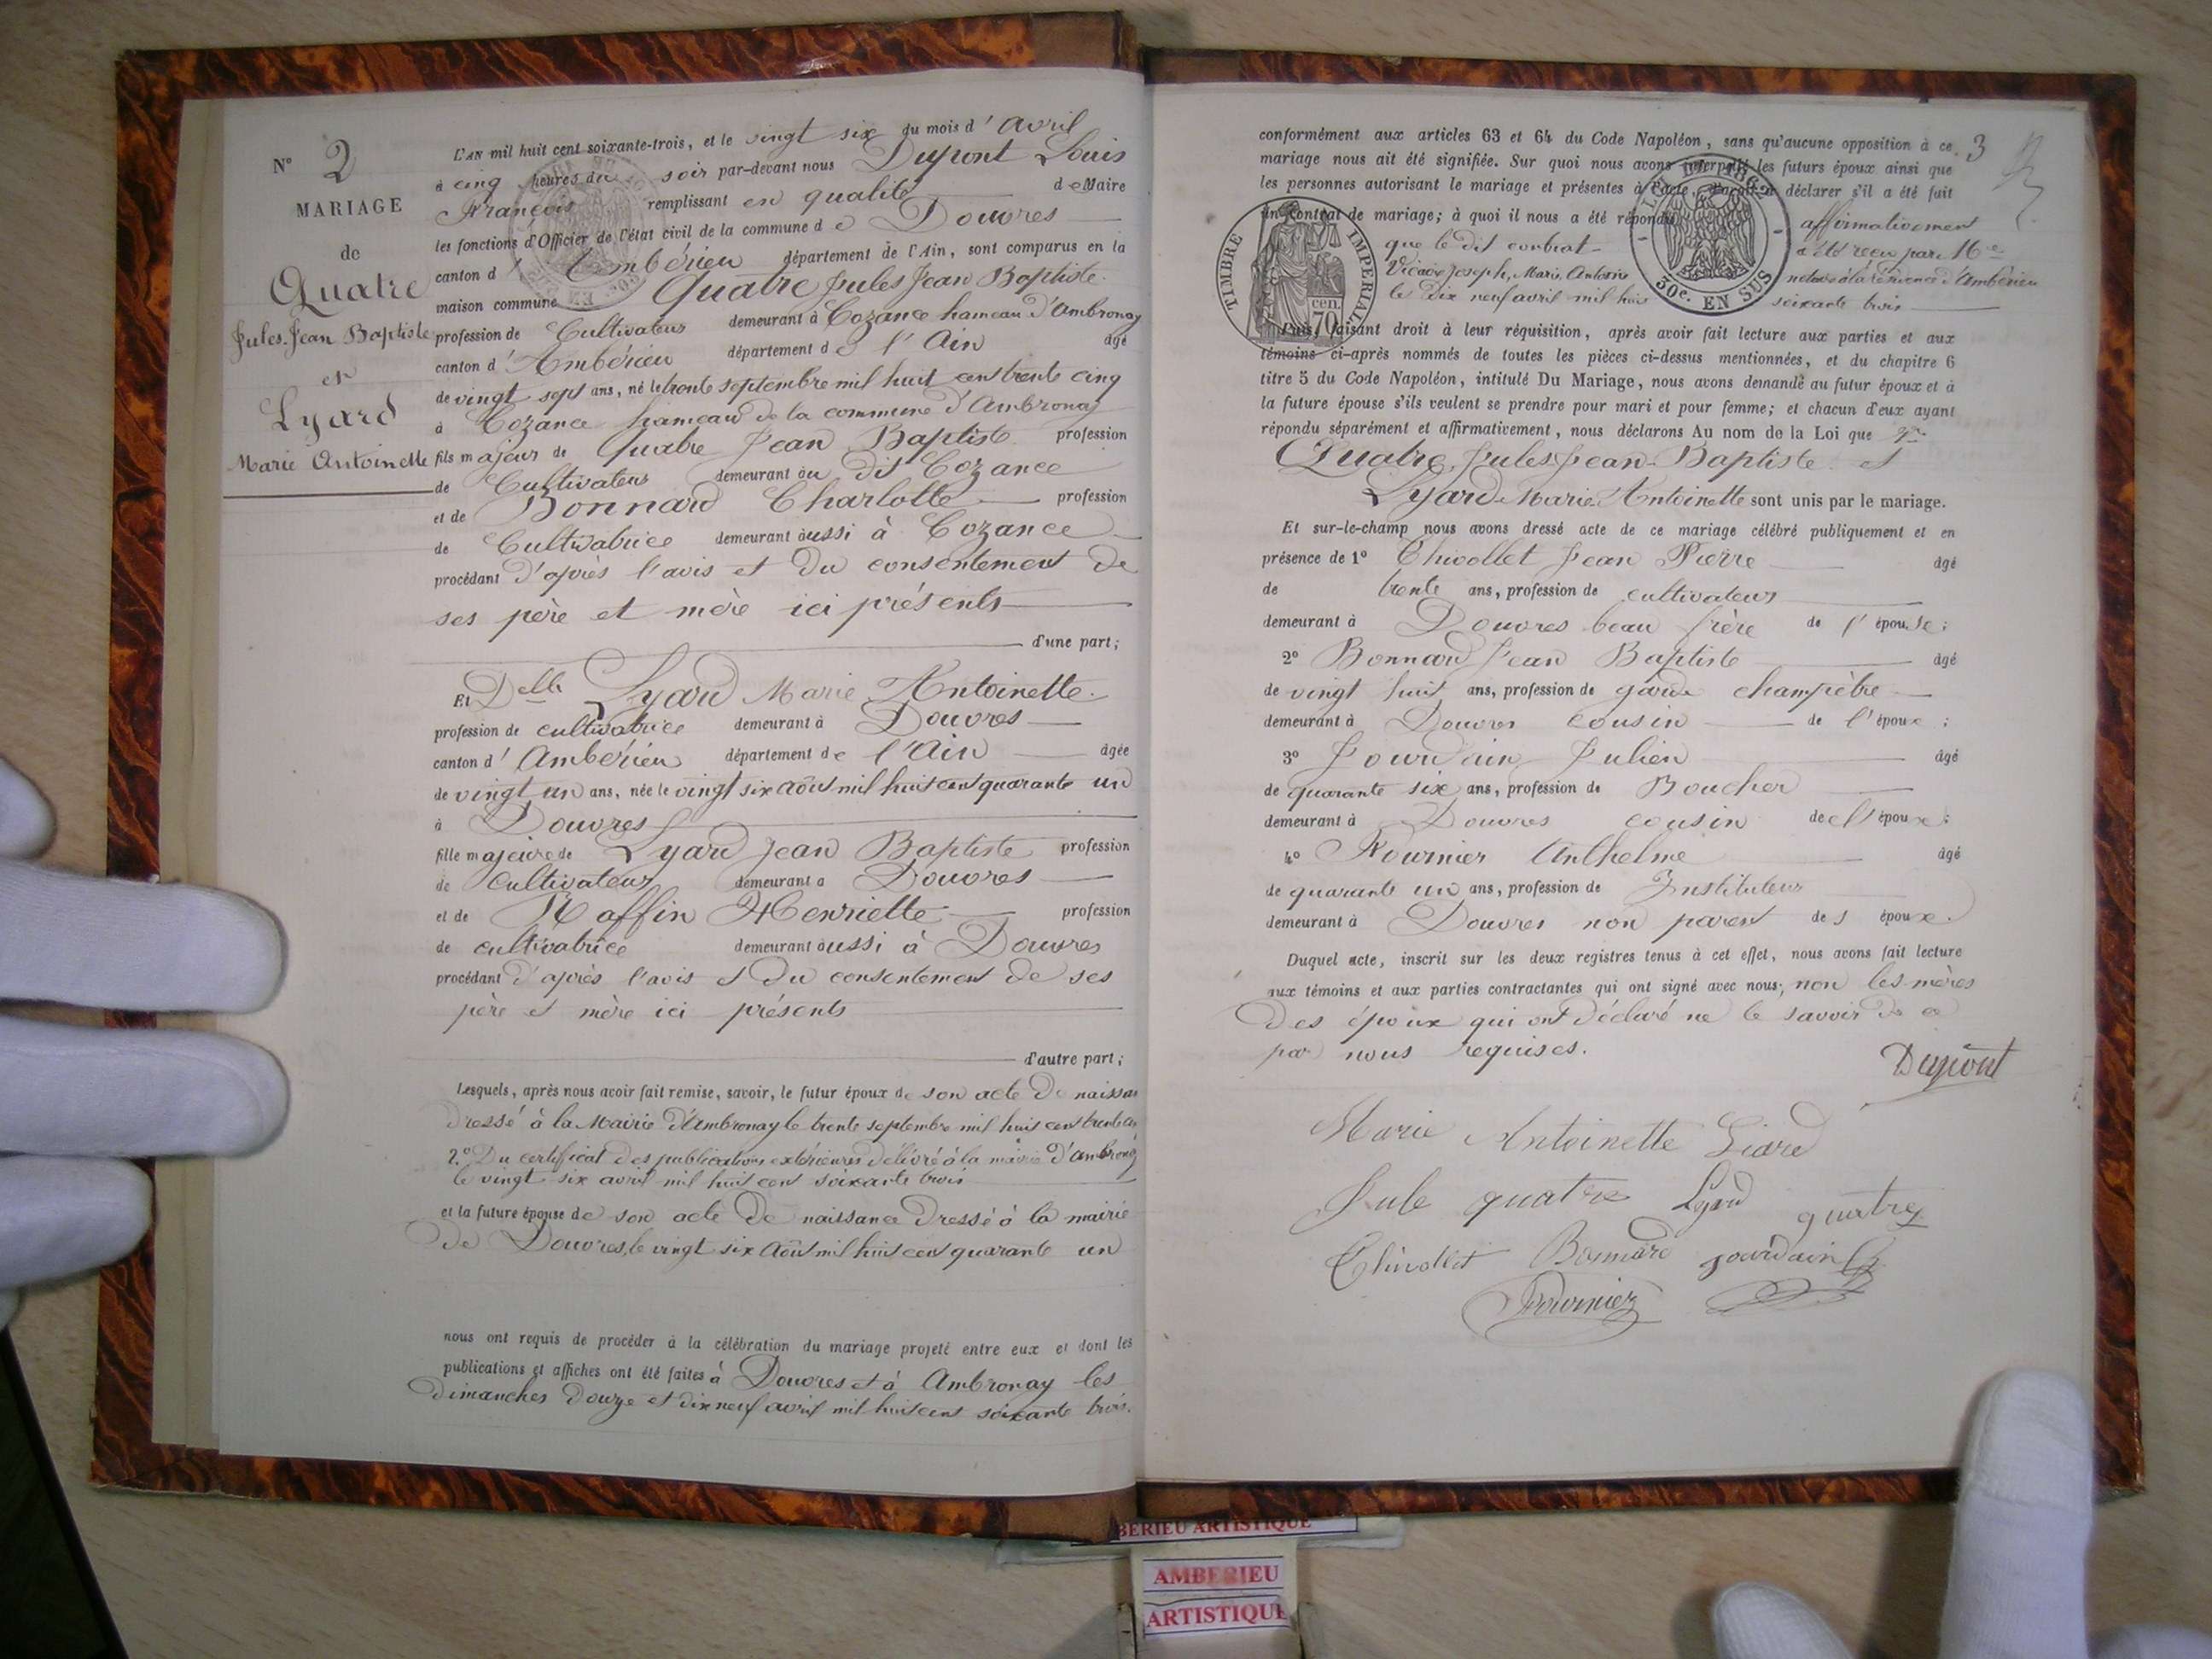 N° 2
MARIAGE
de
Quatre
Jules Jean Baptiste
et
Lyard
Marie Antoinette
L'AN mil huit cent soixante-trois, et le vingt six du mois d'Avril
à cinq heures du soir par-devant nous Dupont Louis
François remplissant en qualité de Maire
les fonctions d'Officier de l'état civil de la commune de Douvres
canton d'Ambérieu département de l'Ain, sont comparus en la
maison commune Quatre Jules Jean Baptiste
profession de Cultivateur demeurant à Cozance hameau d'Ambronay
canton d'Ambérieu département de l'Ain âgé
de vingt sept ans, né le trente septembre mil huit cent trente cinq
à Cozance hameau de la commune d'Ambronay
fils majeur de Quatre Jean Baptiste profession
de Cultivateur demeurant au dit Cozance
et de Bonnard Charlotte profession
de Cultivatrice demeurant aussi à Cozance
procédant d'après l'avis et du consentement de
ses père et mère ici présents
d'une part;
Et Delle Lyard Marie Antoinette
profession de cultivatrice demeurant à Douvres
canton d'Ambérieu département de l'Ain âgée
de vingt un ans, née le vingt six août mil huit cent quarante un
à Douvres
fille majeure de Lyard Jean Baptiste profession
de Cultivateur demeurant à Douvres
et de Roffin Henriette profession
de cultivatrice demeurant aussi à Douvres
procédant d'après l'avis et du consentement de ses
père et mère ici présents
d'autre part;
Lesquels, après nous avoir fait remise, savoir, le futur époux de son acte de naissan
dressé à la Mairie d'Ambronay le trente septembre mil huit cent trente cin
2.° Du certificat des publications extérieures délivré à la mairie d'Ambronay
le vingt six avril mil huit cent soixante trois
et la future épouse de son acte de naissance dressé à la mairie
de Douvres, le vingt six Août mil huit cent quarante un
nous ont requis de procéder à la célébration du mariage projeté entre eux et dont les
publications et affiches ont été faites à Douvres et à Ambronay les
dimanches douze et dix neuf avril mil huit cent soixante trois.
3
conformément aux articles 63 et 64 du Code Napoléon, sans qu'aucune opposition à ce
mariage nous ait été signifiée. Sur quoi nous avons interpellé les futurs époux ainsi que
les personnes autorisant le mariage et présentes à l'acte, d'avoir à déclarer s'il a été fait
un contrat de mariage; à quoi il nous a été répondu affirmativement
que le dit contrat a été reçu par Me
Vicaire Joseph, Marie, Antoine notaire à la résidence d'Ambérieu
le dix neuf avril mil huit soixante trois
TIMBRE IMPERIAL
70 cen.
LOI DE 1862
50c. EN SUS
Puis, faisant droit à leur réquisition, après avoir fait lecture aux parties et aux
témoins ci-après nommés de toutes les pièces ci-dessus mentionnées, et du chapitre 6
titre 5 du Code Napoléon, intitulé Du Mariage, nous avons demandé au futur époux et à
la future épouse s'ils veulent se prendre pour mari et pour femme; et chacun d'eux ayant
répondu séparément et affirmativement, nous déclarons Au nom de la Loi que
Quatre Jules Jean-Baptiste et
Lyard Marie Antoinette sont unis par le mariage.
Et sur-le-champ nous avons dressé acte de ce mariage célébré publiquement et en
présence de 1° Chivollet Jean Pierre âgé
de trente ans, profession de cultivateur
demeurant à Douvres beau frère de l'épouse;
2° Bonnard Jean Baptiste âgé
de vingt huit ans, profession de garde champêtre
demeurant à Douvres cousin de l'époux;
3° Jourdain Julien âgé
de quarante six ans, profession de Boucher
demeurant à Douvres cousin de l'époux;
4° Fournier Anthelme âgé
de quarante un ans, profession de Instituteur
demeurant à Douvres non parent des époux.
Duquel acte, inscrit sur les deux registres tenus à cet effet, nous avons fait lecture
aux témoins et aux parties contractantes qui ont signé avec nous; non les mères
des époux qui ont déclaré ne le savoir de ce
par nous requises.
Dupont
Marie Antoinette Liard
Jule quatre Lyard quatre
Chivollet Bonnard jourdain
Fournier
BERIEU ARTISTIQUE
AMBERIEU
ARTISTIQUE